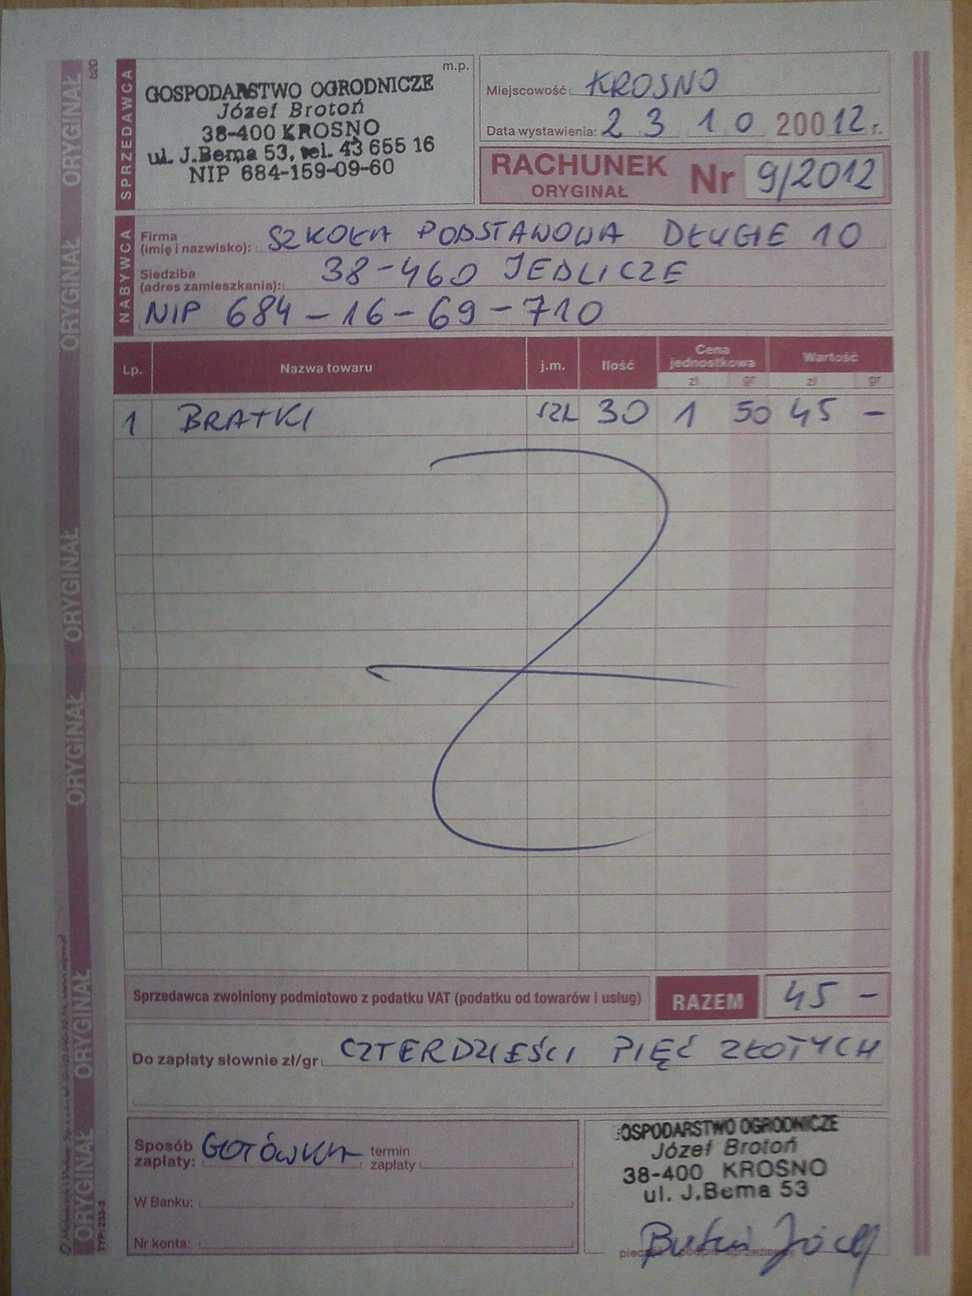 ORYGINAŁ ORYGINAŁ ORYGINAŁ ORYGINAŁ ORYGINAŁ ORYGINAŁ
SPRZEDAWCA
GOSPODARSTWO OGRODNICZE
Józef Brotoń
38-400 KROSNO
ul. J.Bema 53, tel. 43 655 16
NIP 684-159-09-60
m.p.
Miejscowość: KROSNO
Data wystawienia: 23 10 20012 r.
RACHUNEK
ORYGINAŁ
Nr 9/2012
NABYWCA
Firma
(imię i nazwisko): SZKOŁA PODSTAWOWA DŁUGIE 10
Siedziba
(adres zamieszkania): 38-460 JEDLICZE
NIP 684-16-69-710
Lp. Nazwa towaru j.m. Ilość Cena jednostkowa Wartość
zł gr zł gr
1 BRATKI szt 30 1 50 45 -
Sprzedawca zwolniony podmiotowo z podatku VAT (podatku od towarów i usług) RAZEM 45 -
Do zapłaty słownie zł/gr CZTERDZIEŚCI PIĘĆ ZŁOTYCH
Sposób zapłaty: GOTÓWKA termin zapłaty
W Banku:
Nr konta:
GOSPODARSTWO OGRODNICZE
Józef Brotoń
38-400 KROSNO
ul. J.Bema 53
TYP: 233-3